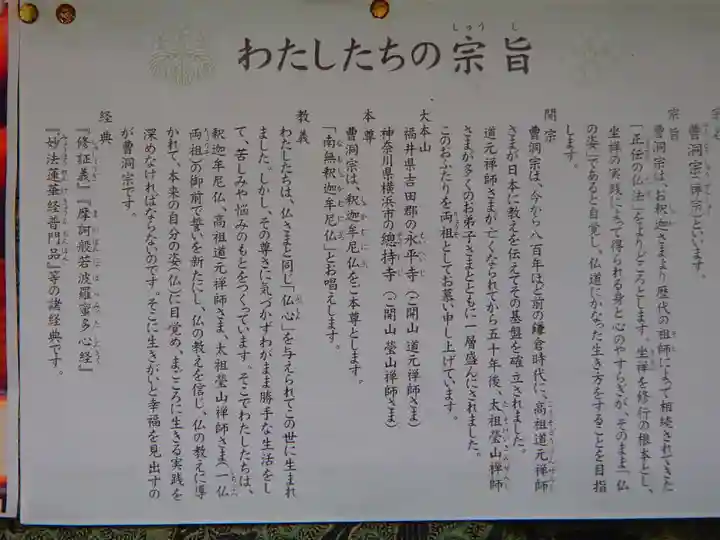 わたしたちの宗旨
曹洞宗(禅宗)といいます。
宗旨
曹洞宗は、お釈迦さまより歴代の祖師によって相続されてきた
「正伝の仏法」をよりどころとします。坐禅を修行の根本とし、
坐禅の実践によって得られる身と心のやすらぎが、そのまま「仏
の姿」であると自覚し、仏道にかなった生き方をすることを目指
します。
開宗
曹洞宗は、今から八百年ほど前の鎌倉時代に、高祖道元禅師
さまが日本に教えを伝えてその基盤を確立されました。
道元禅師さまが亡くなられてから五十年後、太祖瑩山禅師
さまが多くのお弟子さまとともに一層盛んにされました。
このおふたりを両祖としてお慕い申し上げています。
大本山
福井県吉田郡の永平寺(ご開山 道元禅師さま)
神奈川県横浜市の總持寺(ご開山 瑩山禅師さま)
本尊
曹洞宗は、釈迦牟尼仏をご本尊とします。
「南無釈迦牟尼仏」とお唱えします。
教義
わたしたちは、仏さまと同じ「仏心」を与えられてこの世に生まれ
ました。しかし、その尊さに気づかずわがまま勝手な生活をし
て、苦しみや悩みのもとをつくっています。そこでわたしたちは、
釈迦牟尼仏、高祖道元禅師さま、太祖瑩山禅師さま(一仏
両祖)の御前で誓いを新たにし、仏の教えを信じ、仏の教えに導
かれて、本来の自分の姿(仏)に目覚め、まごころに生きる実践を
深めなければならないのです。そこに生きがいと幸福を見出すの
が曹洞宗です。
経典
『修証義』『摩訶般若波羅蜜多心経』
『妙法蓮華経普門品』等の諸経典です。